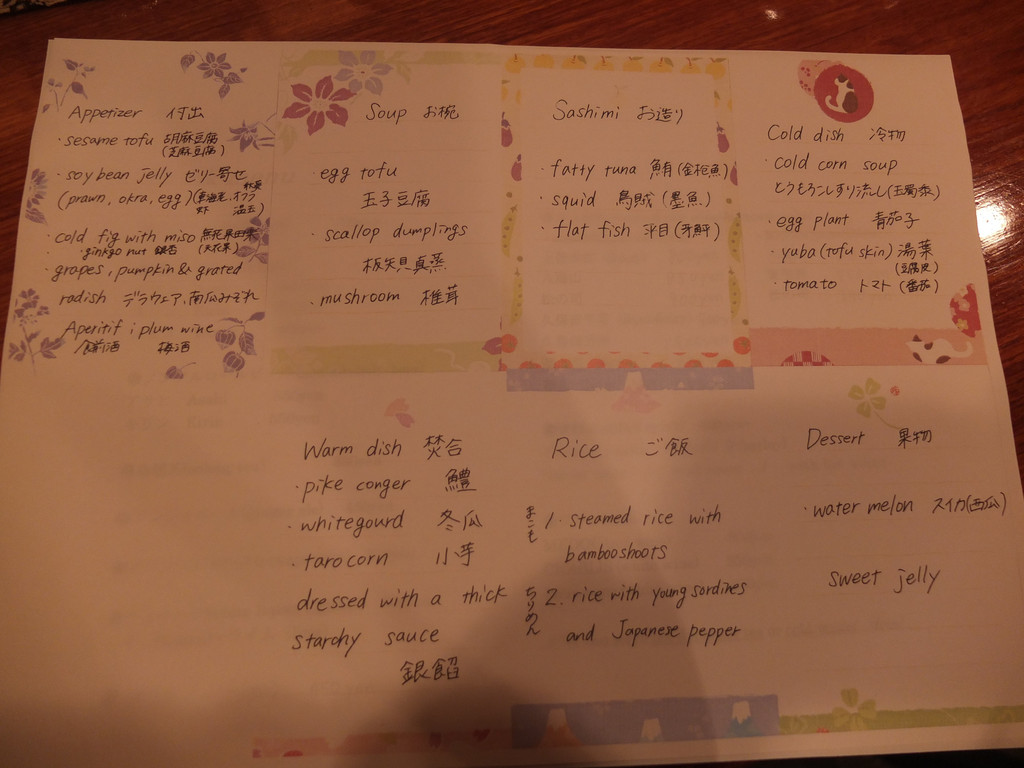 Appetizer 付出
・sesame tofu 胡麻豆腐
(芝麻豆腐)
・soy bean jelly ゼリー寄せ
(prawn, okra, egg)
・cold fig with miso 無花果田楽
・ginkgo nut 銀杏 (天花果)
・grapes, pumpkin & grated
radish デラウェア、南瓜みぞれ
Aperitif ; plum wine
食前酒 梅酒
Soup お椀
・egg tofu
玉子豆腐
・scallop dumplings
板矢貝真蒸
・mushroom 椎茸
Sashimi お造り
・fatty tuna 鮪 (金枪魚)
・squid 烏賊 (墨魚)
・flat fish 平目
Cold dish 冷物
・cold corn soup
とうもろこしすり流し
・egg plant 青茄子
・yuba (tofu skin) 湯葉
(豆腐皮)
・tomato トマト (番茄)
Warm dish 焚合
・pike conger 鱧
・whitegourd 冬瓜
・tarocorn 小芋
dressed with a thick
starchy sauce
銀餡
Rice ご飯
まこも 1. steamed rice with
bambooshoots
ちりめん 2. rice with young sardines
and Japanese pepper
Dessert 果物
・water melon スイカ (西瓜)
sweet jelly